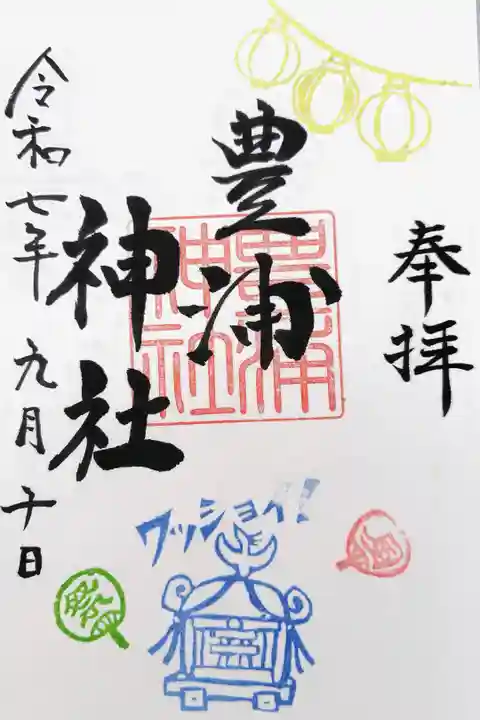 奉拝
豊浦
神社
豊浦
神社
令和七年 九月十日
ワッショイ!!
祭